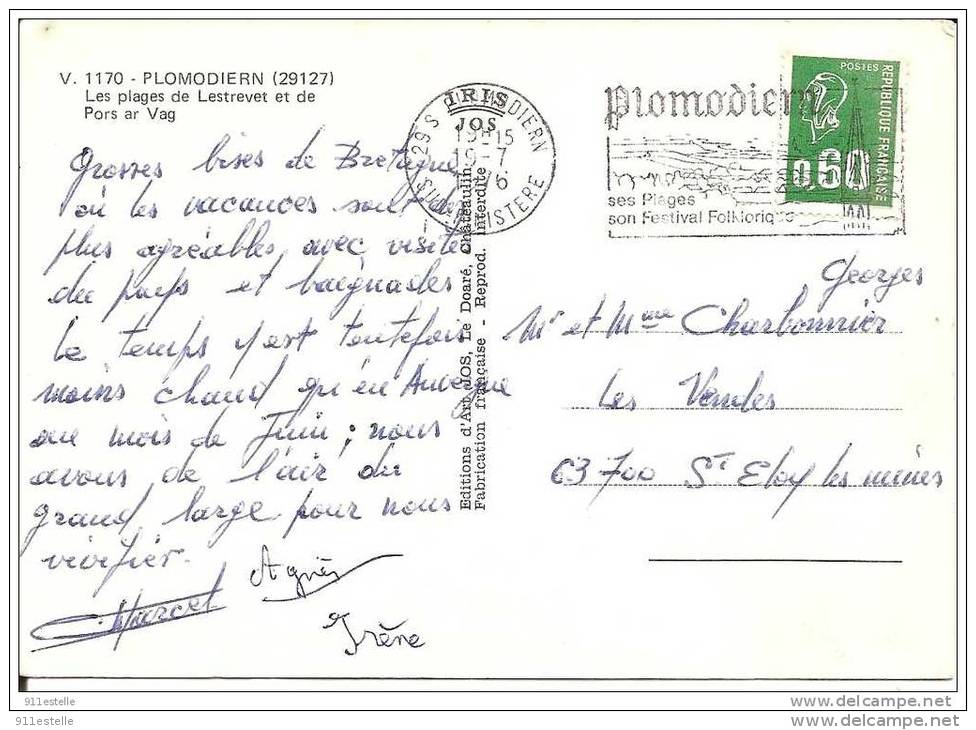 V. 1170 - PLOMODIERN (29127)
Les plages de Lestrevet et de
Pors ar Vag
Grosses bises de Bretagne
où les vacances sont
plus agréables, avec visite
du pays et baignades
Le temps y est toutefois
moins chaud qu'en Auvergne
au mois de Juin ; nous
avons de l'air du
grand large pour nous
vivifier.
Marcel
Agnès
Irène
IRIS
JOS
29 S PLOMODIERN
19H15
19-7
SUD FINISTERE
Editions d'Art JOS, Le Doaré, Châteaulin
Fabrication française - Reprod. interdite
Plomodiern
ses Plages
son Festival Folklorique
POSTES
REPUBLIQUE FRANÇAISE
0,60
Georges
Mr et Mme Charbonnier
Les
63700 St Eloy les mines
911estelle
911estelle
www.delcampe.net
www.delcampe.net